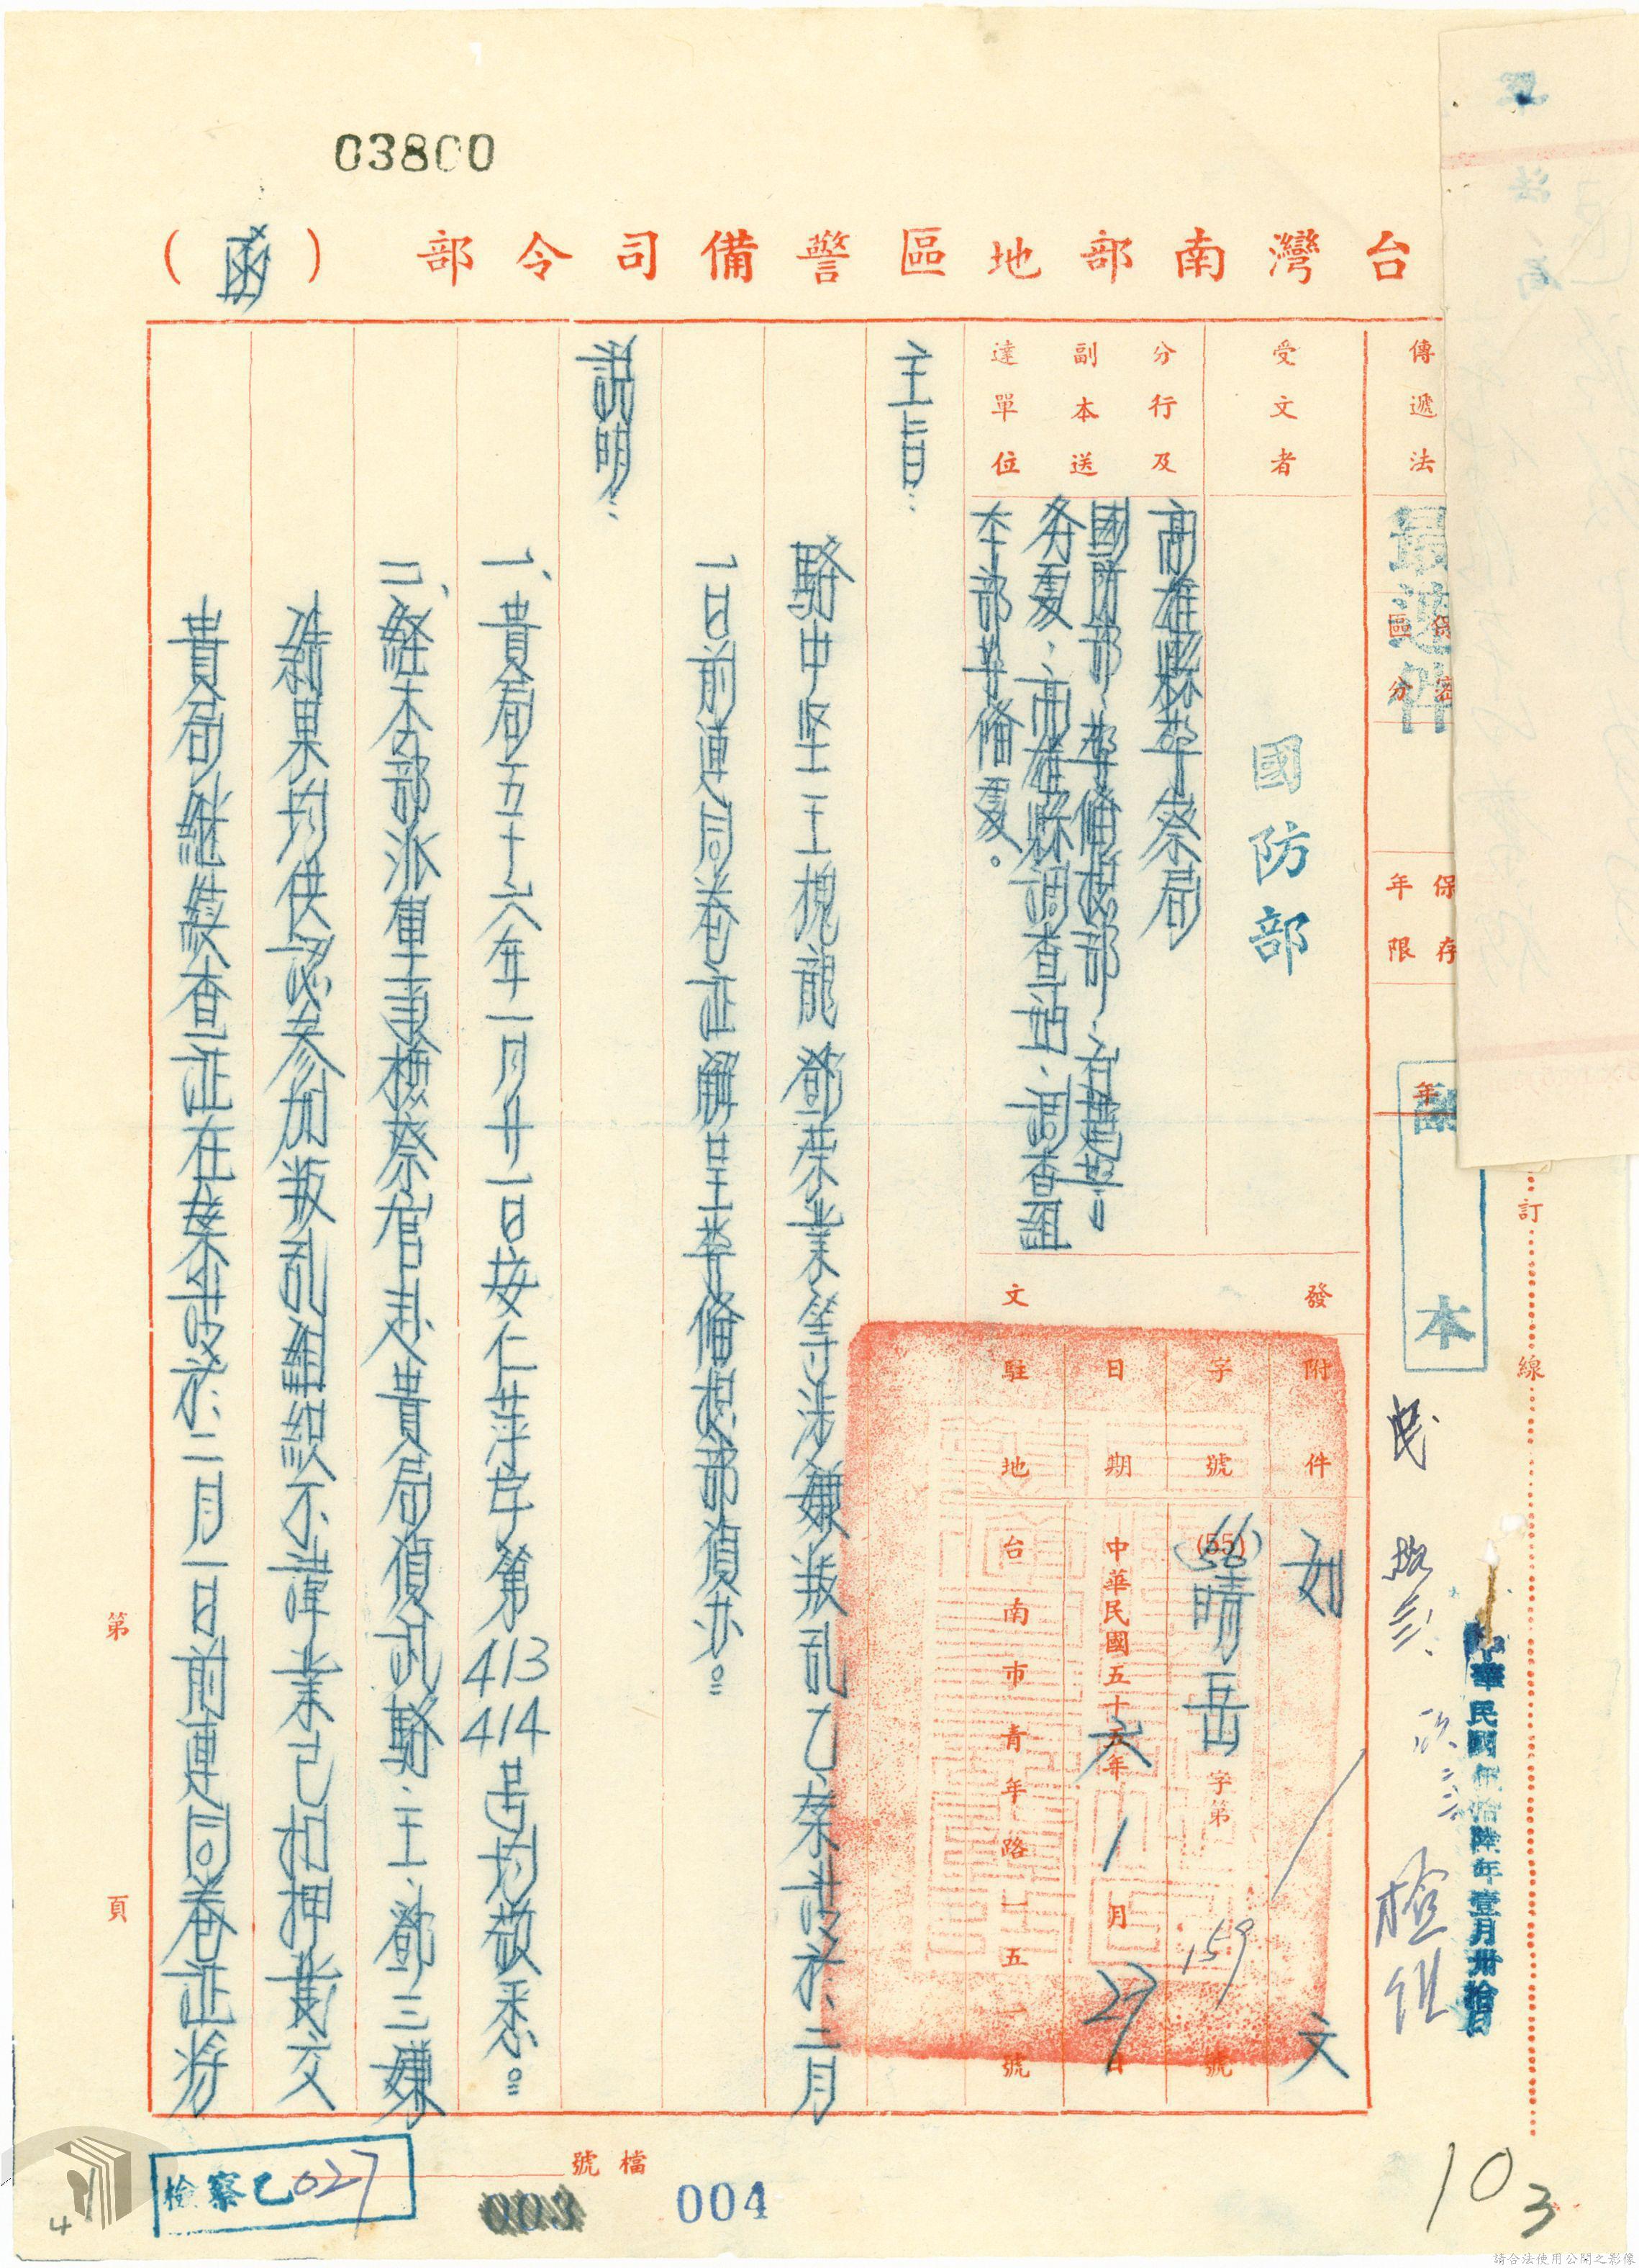 03800
台灣南部地區警備司令部（函）
傳遞法
最速件
保密區分
保存年限
年
副本
受文者
國防部
分行及副本送達單位
高雄縣警察局
國防部、警備總部、台灣警
務處、高雄縣調查站、調查組
本部警備處。
發文
附件
如文
字號
(55)
(56)晴岳字第159號
日期
中華民國五十五年
六
1月27日
駐地
台南市青年路一五一號
主旨：
駱中堅王槐龍鄧荣業等涉嫌叛乱乙案請於二月
1日前連同卷証解呈警備總部偵办。
說明：
一、貴局五十六年一月廿一日安仁萍字第413 414号均敬悉。
二、経本部派軍事檢察官赴貴局偵訊駱、王、鄧三嫌
結果均供認參加叛乱組織不諱業已扣押票交
貴局継續查証在案請於二月一日前連同卷証將
訂
線
中華民國伍拾陸年壹月卅拾日
第
頁
檔號
檢察乙027
003
004
103
4
請合法使用公開之影像